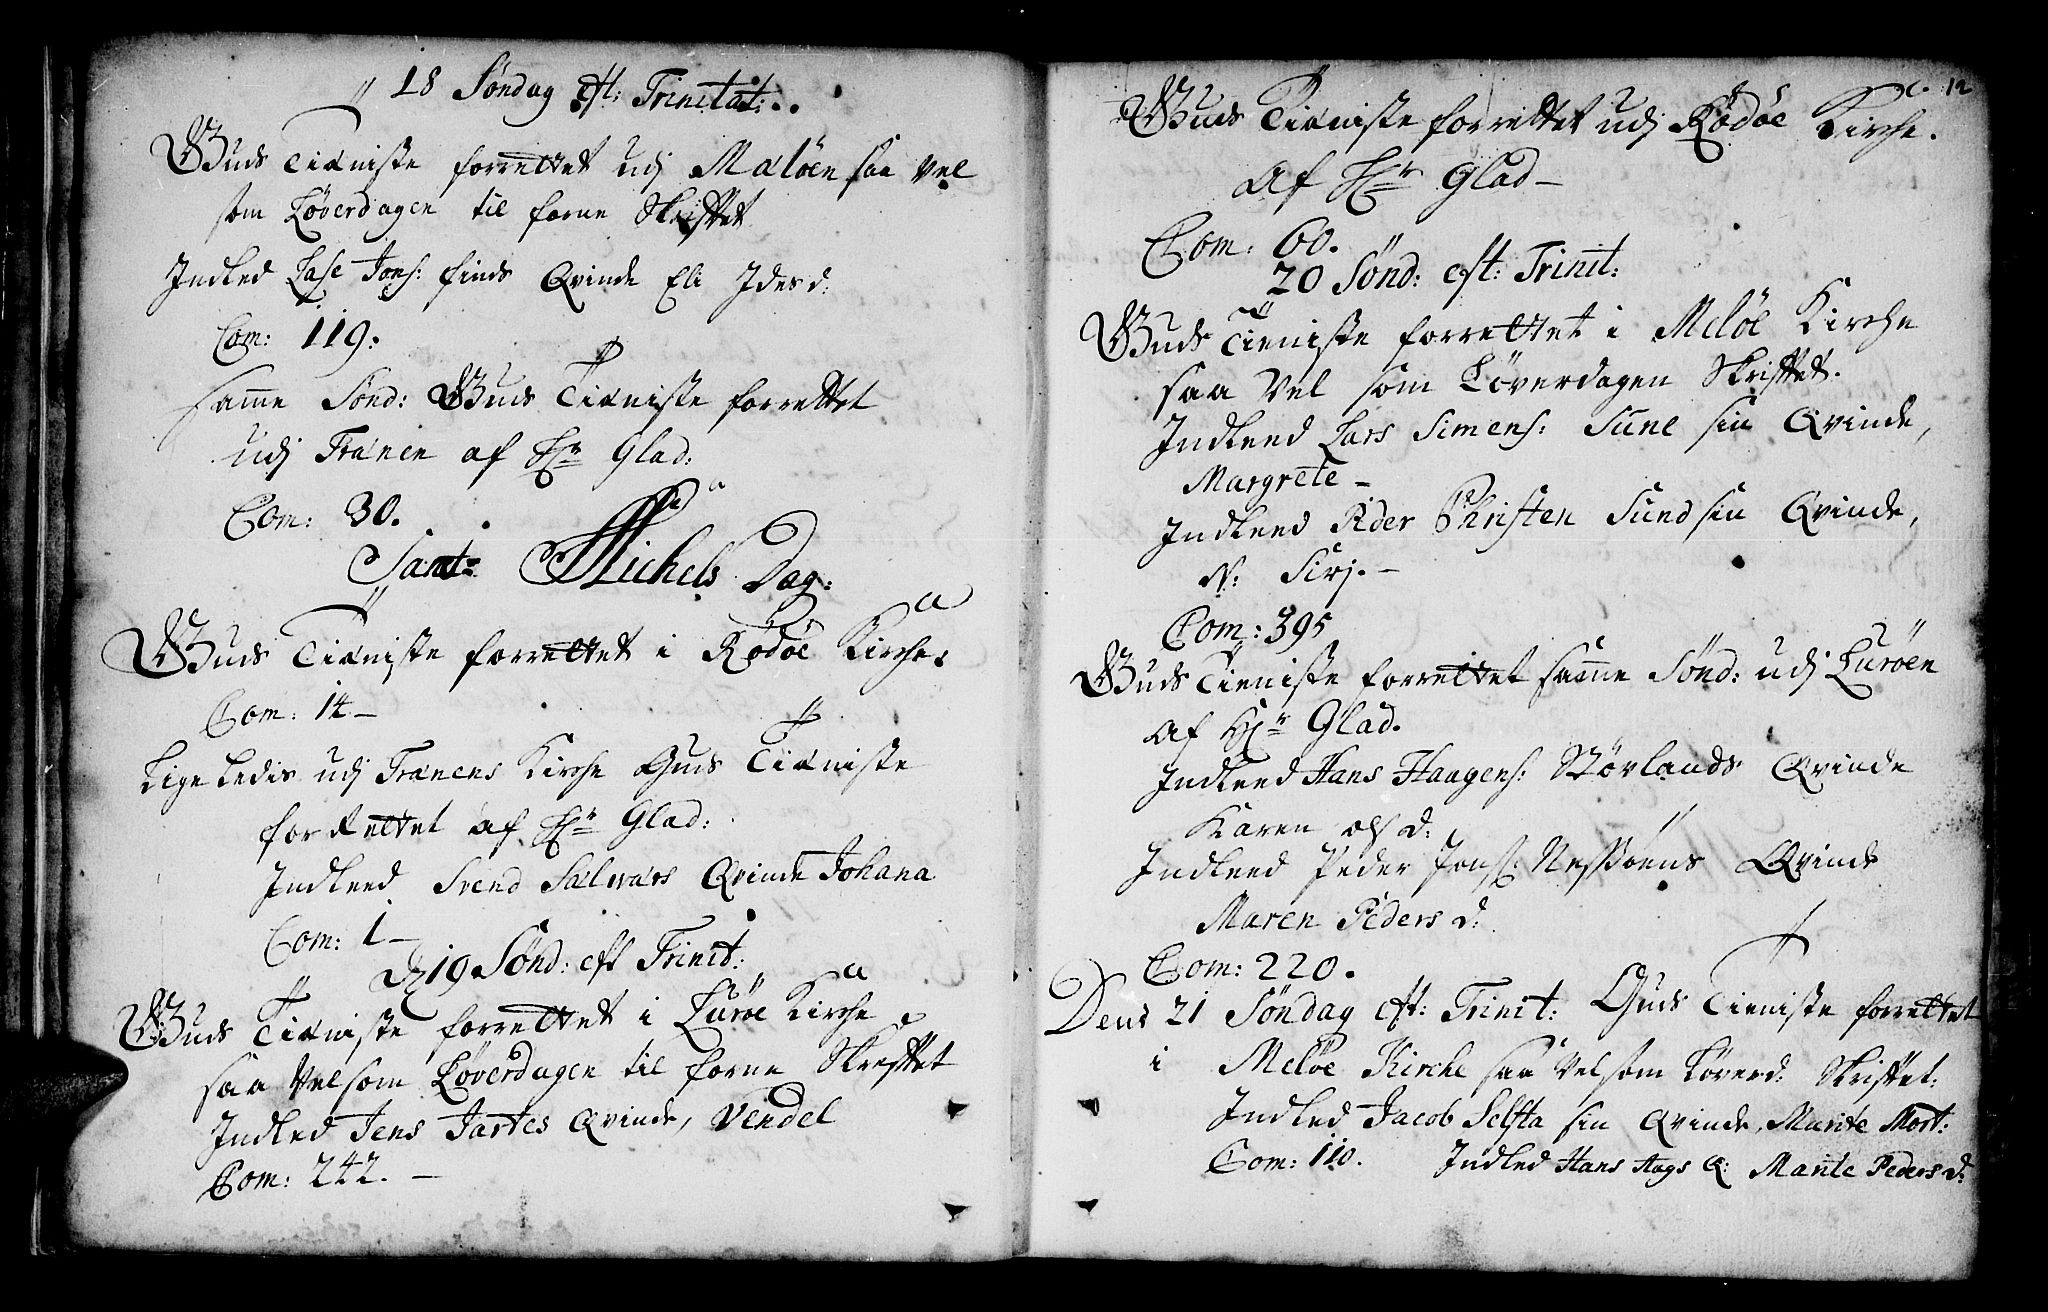 18 Søndag eft: Trinitat:
Guds Tieniste forrettet udj Meløen saa vel
som Løverdagen til forne Skrifftet
Indled Lase Jons: finds Qvinde Eli Idesd:
Com: 119:
samme Sønd: Guds Tieniste forrettet
udj Trænen af Hr Glad:
Com: 30.
Sant Michels Dag:
Guds Tieniste forrettet i Rødøe Kirche.
Com: 14 –
Lige ledis udj Trænens Kirche Guds Tieniste
forRettet af Hr Glad:
Indleed Svend Selværs Qvinde Johana
Com: 1 –
D 19 Sønd: eft Trinit:
Guds Tieniste forrettet i Lurøe Kirche
saa Vel som Løverdagen til forne Skrefftet
Indled Jens Jartes Qvinde, Vendel
Com: 242. –
12
Guds Tieniste forrettet udj Rødøe Kirche.
af Hr Glad –
Com: 60.
20 Sønd: eft: Trinit:
Guds Tieniste forrettet i Meløe Kirche
saa Vel som Løverdagen Skrifftet.
Indleed Lars Simens: Sune sin Qvinde,
Margrete –
Indleed Peder Christen Sund sin Qvinde,
N: Sirj. –
Com: 395
Guds Tieniste forrettet samme Sønd: udj Lurøen
af Hr Glad.
Indleed Hans Haagens: Størlands Qvinde
Karen Ols d:
Indleed Peder Jons: Nessøens Qvinde
Maren Peders d:
Com: 220.
Dend 21 Søndag eft: Trinit: Guds Tieniste forrettet
i Meløe Kirche saa Vel som Løverd: Skrifftet:
Indled Jacob Selsta sin Qvinde, Marite Mort:
Com: 110. Indled Hans Aags Q: Marite Peders d: